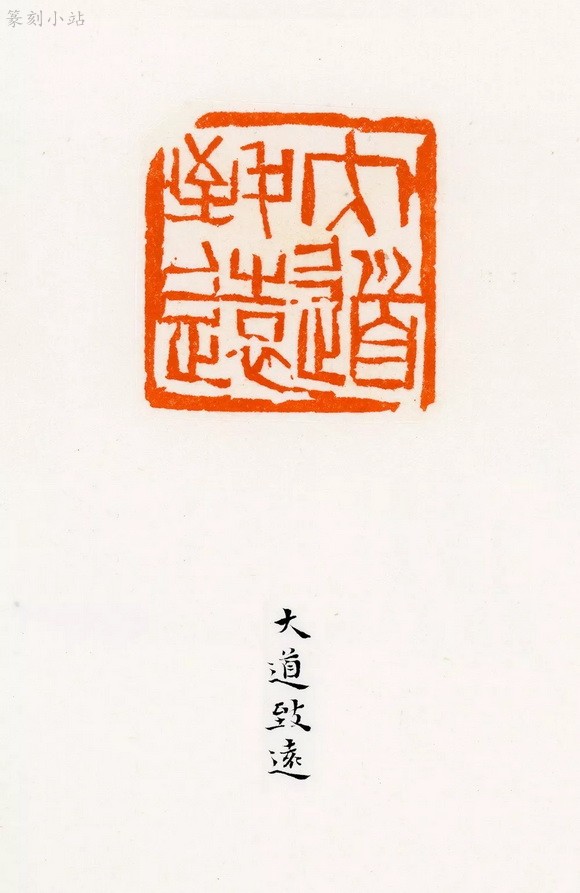 篆刻小站
大道致遠
大道致遠